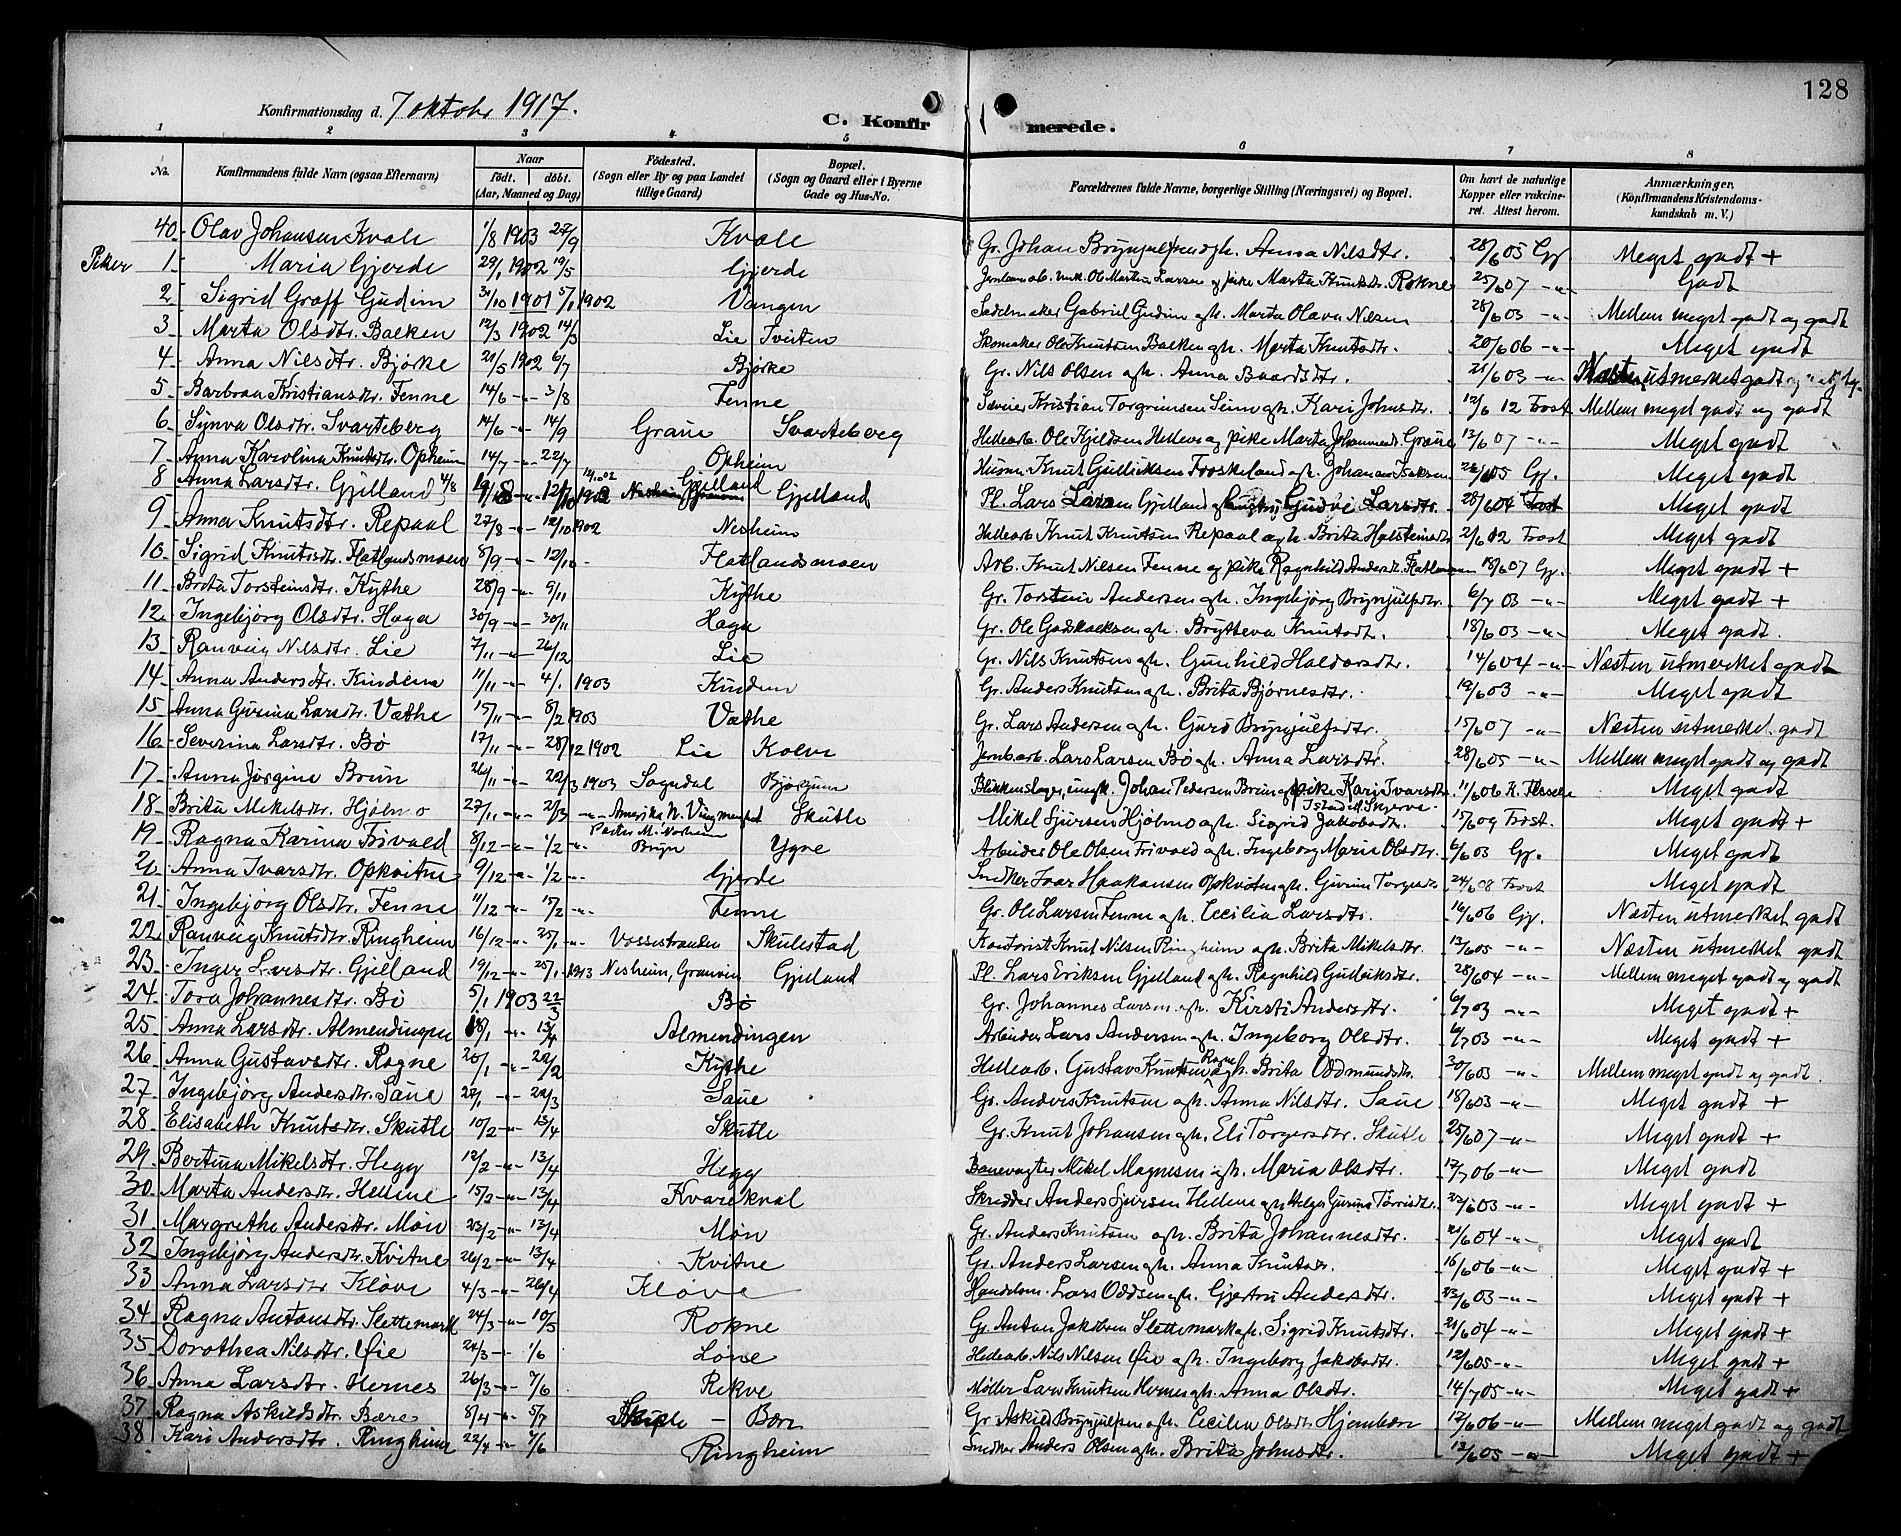 128
Konfirmationsdag d. 7 oktobr 1917.
C. Konfirmerede.
1 2 3 4 5 6 7 8
No. Konfirmandens fulde Navn (ogsaa Efternavn) Naar født. døbt. (Aar, Maaned og Dag) Fødested. (Sogn eller By og paa Landet tillige Gaard) Bopæl. (Sogn og Gaard eller i Byerne Gade og Hus-No. Forældrenes fulde Navne, borgerlige Stilling (Næringsvei) og Bopæl. Om havt de naturlige Kopper eller vakcineret. Attest herom. Anmærkninger. (Konfirmandens Kristendomskundskab m. V.)
40. Olav Johansen Kvale 1/8 1903 27/9 Kvale Gr. Johan Brynjulfsen ogh. Anna Nilsdtr. 28/6 05 Gj. Meget godt +
Piker 1. Maria Gjerde 29/1 1902 19/5 Gjerde Ole Martin Larsen og pike Marta Knutsdtr. Rokne 25/6 07 -"- Godt
2. Sigrid Graff Gudim 31/10 1901 5/1 1902 Vangen Sadelmaker Gabriel Gudim ogh. Marta Olava Nilsen 28/6 03 -"- Mellem meget godt og godt
3. Marta Olsdtr. Balken 12/3 1902 14/3 Lie Tveiten Skomaker Ole Knutsen Balken ogh. Marta Knutsdtr. 20/6 06 -"- Meget godt
4. Anna Nilsdtr. Bjørke 21/5 1902 6/7 Bjørke Gr. Nils Olsen ogh. Anna Baardsdtr. 21/6 03 -"- Næsten utmerket godt
5. Barbraa Kristiansdtr. Fenne 14/6 -"- 3/8 Fenne Kristian Torgrimsen Seim ogh. Kari Johnsdtr. 12/6 12 Frost Mellem meget godt og godt
6. Synva Olsdtr. Svarteberg 14/6 -"- 14/9 Graue Svarteberg Hellearb. Ole Kjeldsen Helleve og pike Marta Johannesdtr. Graue 12/6 07 -"- Meget godt
7. Anna Karolina Knutsdtr. Opheim 14/7 -"- 22/7 Opheim Knut Gulliksen Froskeland ogh. Johanna Isaksen 26/6 05 Gj. Meget godt
8. Anna Larsdtr. Gjelland 4/8 12/10 02 Gjelland Gjelland Pl. Lars Larsen Gjelland Gudve Larsdtr. 28/6 04 Meget godt
9. Anna Knutsdtr. Repaal 27/8 -"- 12/10 1902 Nesheim Hellearb. Knut Knutsen Repaal ogh. Brita Halsteinsdtr 2/6 02 Frost Meget godt
10. Sigrid Knutsdtr. Flatlandsmoen 8/9 -"- 12/10 Flatlandsmoen Arb. Knut Nilsen Fenne og pike Ragnhild Andersdtr. 18/6 07 Gj. Meget godt +
11. Brita Torsteinsdtr. Kythe 28/9 -"- 9/11 Kythe Gr. Torstein Andersen ogh. Ingebjørg Brynjulfsdtr. 6/7 03 -"- Meget godt +
12. Ingebjørg Olsdtr. Haga 30/9 -"- 30/11 Haga Gr. Ole Godskalksen ogh. Bryteva Knutsdtr. 18/6 03 -"- Meget godt.
13. Ranveig Nilsdtr. Lie 7/11 -"- 26/12 Lie Gr. Nils Knutsen ogh. Gunhild Haldorsdtr. 14/6 04 -"- Næsten utmerket godt
14. Anna Andersdtr. Kindem 11/11 -"- 4/1 1903 Kindem Gr. Anders Knutsen ogh. Brita Bjørnesdtr. 19/6 03 -"- Meget godt
15. Anna Gurina Larsdtr. Væthe 15/11 -"- 8/2 1903 Væthe Gr. Lars Andersen ogh. Guro Brynjulfsdtr. 15/6 07 -"- Næsten utmerket godt
16. Severina Larsdtr. Bø 17/11 -"- 28/12 1902 Lie Kolve Jernbarb. Lars Larsen Bø ogh. Anna Larsdtr. 28/6 05 -"- Mellem meget godt og godt
17. Anna Jørgine Brun 26/11 -"- 22/3 1903 Sogndal Bjørgum Blikkenslager, Johan Pedersen Brun og pike Kari Ivarsdtr. 11/6 06 Meget godt
18. Brita Mikelsdtr. Hjølmo 27/11 -"- 2/3 -"- Amerika Skutle Mikel Sjursen Hjølmo ogh. Sigrid Jakobsdtr. 15/6 09 Frost. Meget godt +
19. Ragna Karina Trivold 8/12 -"- 1/2 -"- Bryn Ygre Arbeider Ole Olsen Trivold ogh. Ingeborg Maria Olsdtr. 6/6 03 Gj. Meget godt
20. Anna Ivarsdtr. Opkvitne 9/12 -"- 1/2 -"- Gjerde Snedker Ivar Haakonsen Opkvitne ogh. Gurine 24/6 08 Frost Meget godt
21. Ingebjørg Olsdtr. Fenne 11/12 -"- 15/2 -"- Fenne Gr. Ole Larsen Fenne ogh. Cecilia Larsdtr. 16/6 06 Gj. Næsten utmerket godt
22. Ranveig Knutsdtr. Ringheim 16/12 -"- 25/1 -"- Vossestranden Skulestad Kontorist Knut Nilsen Ringheim ogh. Brita Mikelsdtr. 13/6 05 -"- Næsten utmerket godt
23. Inger Larsdtr. Gjelland 19/12 -"- 25/1 1903 Nesheim, Granvin Gjelland Pl. Lars Eriksen Gjelland ogh. Ragnhild Gulleiksdtr. 28/6 04 -"- Mellem meget godt og godt
24. Tora Johannesdtr. Bø 5/1 1903 22/3 Bø Gr. Johannes Larsen ogh. Kirsti Andersdtr. 6/7 03 -"- Meget godt +
25. Anna Larsdtr. Almendingen 8/1 -"- 13/4 Almendingen Arbeider Lars Andersen ogh. Ingeborg Olsdtr. 6/7 03 -"- Meget godt +
26. Anna Gustavsdtr. Rogne 20/1 -"- 22/2 Kythe Hellearb. Gustav Knutsen Rogne ogh. Brita Oddmundsdtr. 30/6 03 -"- Mellem meget godt og godt.
27. Ingebjørg Andersdtr. Saue 27/1 -"- 22/3 Saue Gr. Anders Knutsen ogh. Anna Nilsdtr. Saue 18/6 03 -"- Meget godt +
28. Elisabeth Knutsdtr. Skutle 10/2 -"- 13/4 Skutle Gr. Knut Johansen ogh. Eli Torgersdtr. Skutle 25/6 07 -"- Meget godt +
29. Bertina Mikelsdtr. Hegg 12/2 -"- 13/4 Hegg Banevagter Mikel Magnesen ogh. Maria Olsdtr. 17/7 06 -"- Meget godt
30. Marta Andersdtr. Hellene 15/2 -"- 13/4 Kvarekval Skredder Anders Sjursen Hellene ogh. Helga Gurina 22/6 03 -"- Meget godt +
31. Margrethe Andersdtr. Møn 23/2 -"- 13/4 Møn Gr. Anders Knutsen ogh. Brita Johannesdtr. 21/6 04 -"- Meget godt
32. Ingebjørg Andersdtr. Kvitne 26/2 -"- 13/4 Kvitne Gr. Anders Larsen ogh. Anna Knutsdtr. 16/6 06 -"- Meget godt +
33. Anna Larsdtr Kløve 4/3 -"- 26/4 Kløve Handelsm. Lars Oddsen ogh. Gjertru Andersdtr. 23/6 03 -"- Meget godt +
34. Ragna Antonsdtr. Slettemark 24/3 -"- 10/5 Rokne Gr. Anton Jakobsen Slettemark ogh. Sigrid Knutsdtr. 21/6 04 -"- Meget godt +
35. Dorothea Nilsdtr. Øie 24/3 -"- 1/6 Løne Hellearb. Nils Nilsen Øie ogh. Ingeborg Jakobsdtr. 12/6 05 -"- Meget godt +
36. Anna Larsdtr. Hernes 26/3 -"- 7/6 Rekve Møller Lars Knutsen Hernes ogh. Anna Olsdtr. 14/7 05 -"- Meget godt +
37. Ragna Askildsdtr. Bære 8/4 -"- 5/7 - Børe Gr. Askild Brynjulfsen ogh. Cecilia Olsdtr. Hjembære 17/6 06 -"- Mellem meget godt og godt
38. Kari Andersdtr. Ringheim 22/4 -"- 7/6 Ringheim Snedker Anders Olsen ogh. Brita Johnsdtr. 12/6 05 -"- Meget godt +